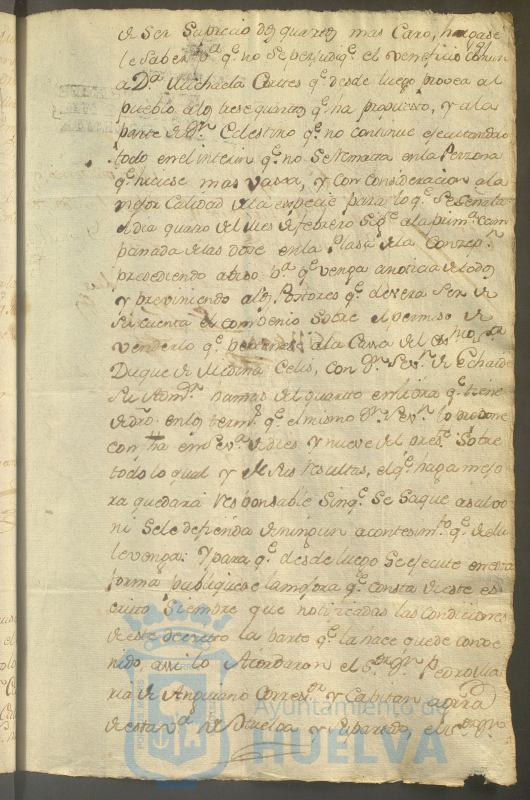 de ser su precio dos quartos mas caro, hagase
le saber pa. qe. no se perjudiqe. el veneficio comun
a Da. Michaela Cortes qe. desde luego provea al
pueblo a los trese quartos qe. ha propuesto, y a la
parte de Dn. Celestino qe. no continue egecutando
todo en el interin qe. no se remata en la Perzona
qe. hiciese mas vaxa, y con consideracion a la
mejor calidad de la especie para lo qe. se señala
el dia quatro del mes de febrero a la prima. cam
panada de las dose en la Plasa de la
presediendo abiso pa. qe. venga a noticia de todos
y previniendo a los Postores qe. devera ser de
su cuenta el combenio sobre el permiso de
venderlo qe. pertenese a la Casa del
Duque de Medina Celi, con Dn. de Echalde
su Admor. ramos del quarto en libra qe. tiene
dho. en los termos. qe. el mismo Dn. lo propone
con fha en de dies y nueve del preste. sobre
todo lo qual y de sus resultas, el qe. haga mejo
ra quedará responsable sin qe. se saque a salvo
ni se le defienda de ningun acontesimto. qe. de el
le venga: Y para qe. desde luego se ejecute en esta
forma publiquese la mejora qe. consta de este es
crito siempre que notificadas las condiciones
de este decreto la parte qe. la hace quede conve
nido, assi lo Acordaron el Sor. Dn. Pedro Ma
ria de Anguiano Correxor. y Capitan aguerra
de esta Va. de Huelva y su partido, el Sor. Dn.
Ayuntamiento de
HUELVA